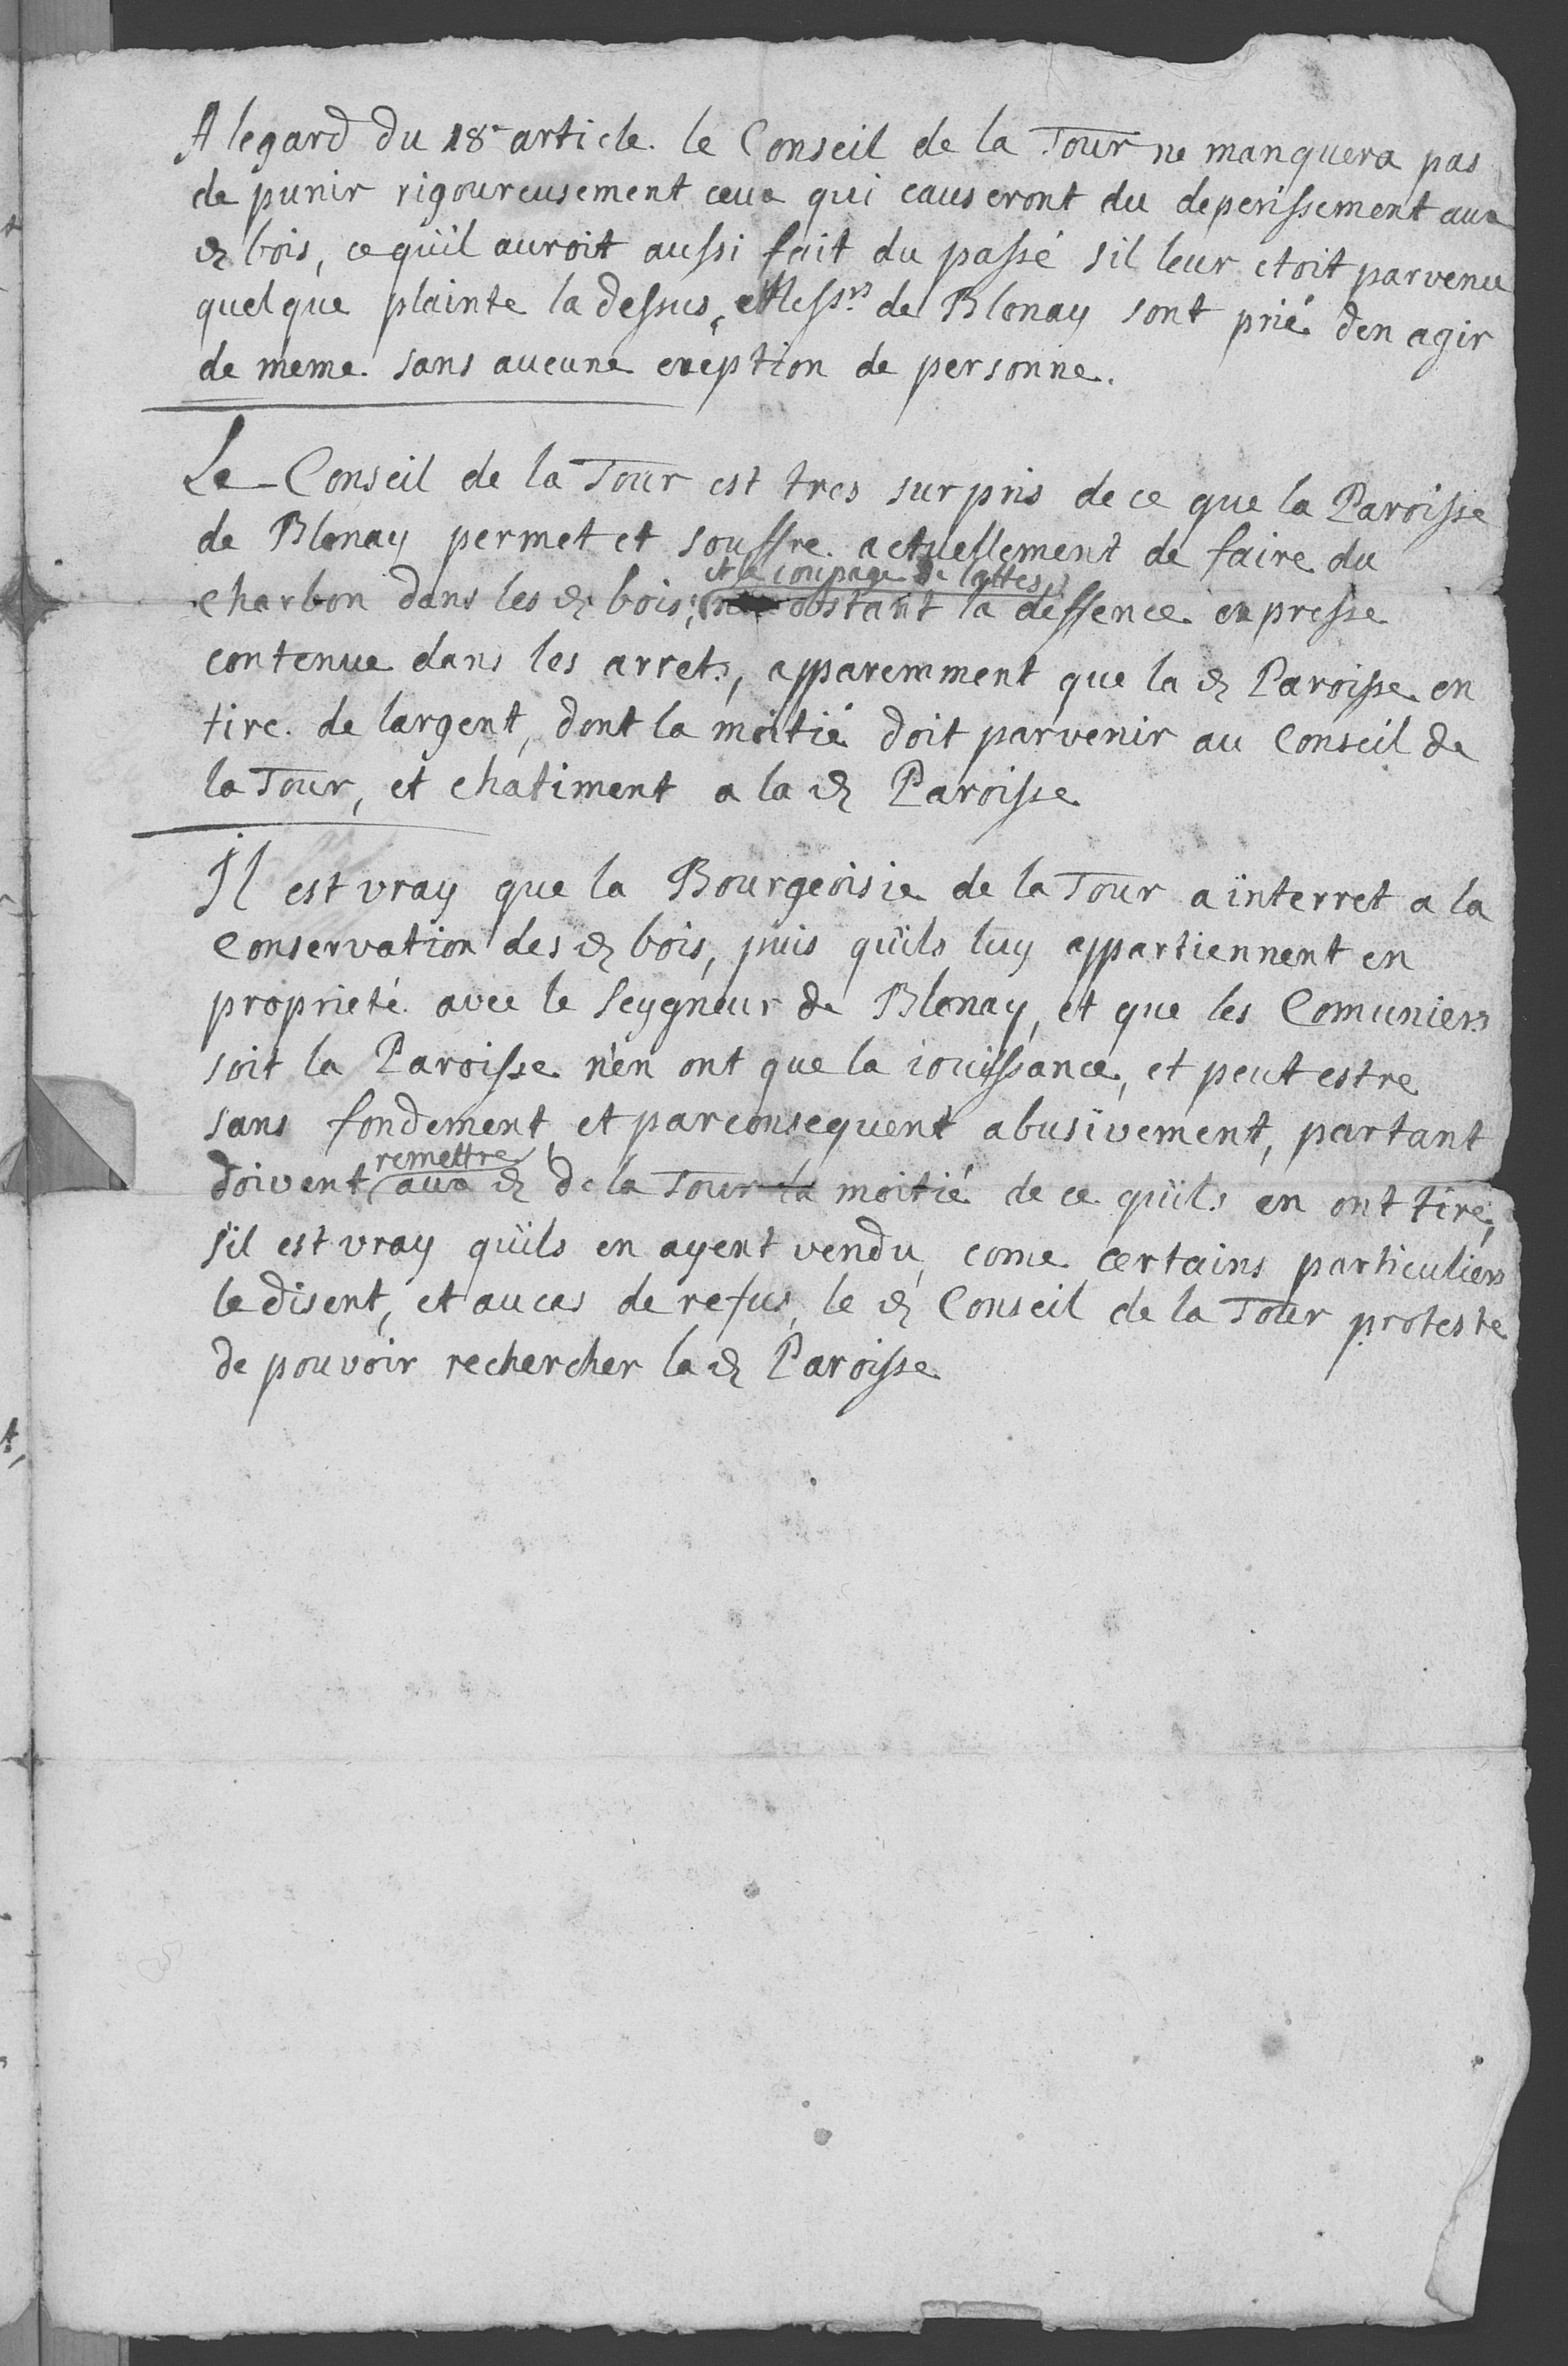 A legard du 18e article. le Conseil de la Tour ne manquera pas
de punir rigoureusement ceux qui causeront du deperissement aux
d. bois, ce quil auroit aussi fait du passé sil leur etoit parvenu
quelque plainte la dessus, et Messrs de Blonay sont prié den agir
de meme. sans aucune exeption de personne.
Le Conseil de la Tour est tres surpris de ce que la Paroisse
de Blonay permet et souffre. actuellement de faire du
et le coupage de lattes,
charbon dans les d. bois, obstant la deffence expresse
contenue dans les arrets, apparemment que la d. Paroisse en
tire. de largent, dont la moitié doit parvenir au Conseil de
la Tour, et chatiment a la d. Paroisse
Il est vray que la Bourgeoisie de la Tour a interret a la
Conservation des d. bois, puis quils luy appartiennent en
proprieté avec le Seygneur de Blonay, et que les Comuniers
soit la Paroisse n'en ont que la iouissance, et peut estre
sans fondement, et parconsequent abusivement, partant
remettre
doivent aux d. de la Tour la moitié de ce quils en ont tiré,
s'il est vray quils en ayent vendu, come certains particuliers
le disent, et au cas de refus, le d. Conseil de la Tour proteste
de pouvoir rechercher la d. Paroisse